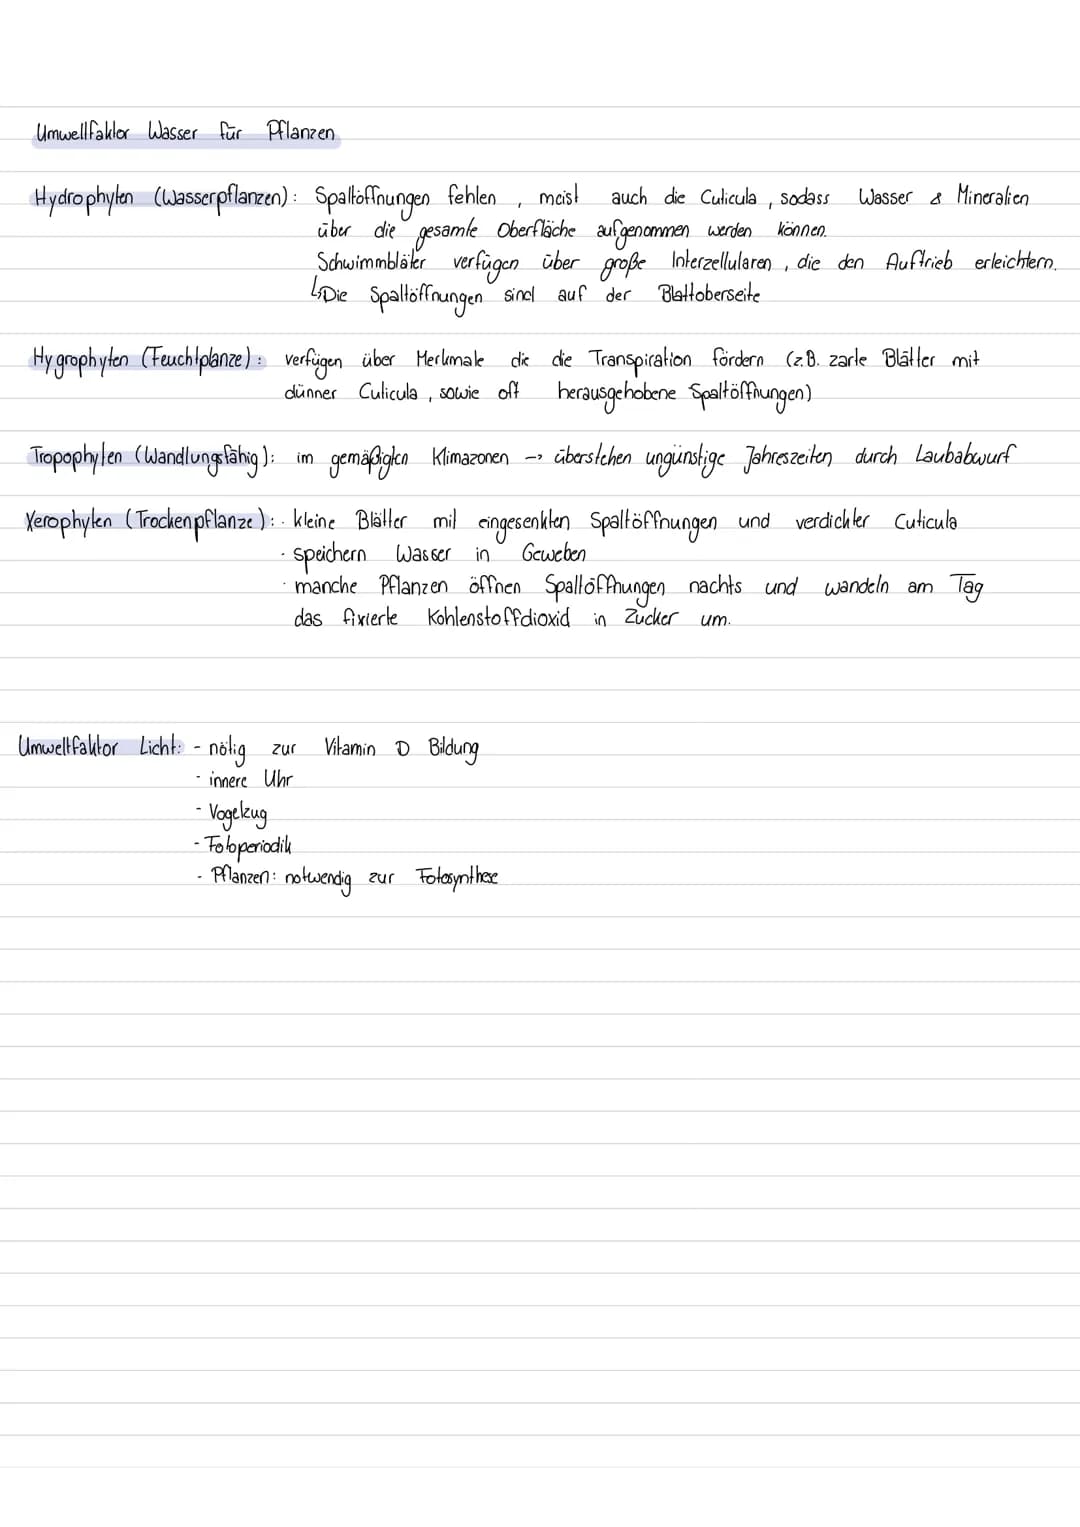 Umweltfaktor Wasser für Pflanzen
Hydrophyten (Wasserpflanzen): Spaltöffnungen fehlen, meist auch die Cuticula, sodass Wasser & Mineralien
über die gesamte Oberfläche aufgenommen werden können.
Schwimmbläter verfügen über große Interzellularen, die den Auftrieb erleichtern.
↳Die Spaltöffnungen sind auf der Blattoberseite
Hygrophyten (Feuchtplanze): verfügen über Merkmale die die Transpiration fördern (z.B. zarte Blätter mit
dünner Cuticula, sowie oft herausgehobene Spaltöffnungen)
Tropophyten (Wandlungsfähig): im gemäßigten Klimazonen -> überstehen ungünstige Jahreszeiten durch Laubabwurf
Xerophyten (Trockenpflanze): · kleine Blätter mit eingesenkten Spaltöffnungen und verdichter Cuticula
· speichern Wasser in Geweben
· manche Pflanzen öffnen Spaltöffnungen nachts und wandeln am Tag
das fixierte Kohlenstoffdioxid in Zucker um.
Umweltfaktor Licht: - nötig zur Vitamin D Bildung
- innere Uhr
- Vogelzug
- Fotoperiodik
- Pflanzen: notwendig zur Fotosynthese